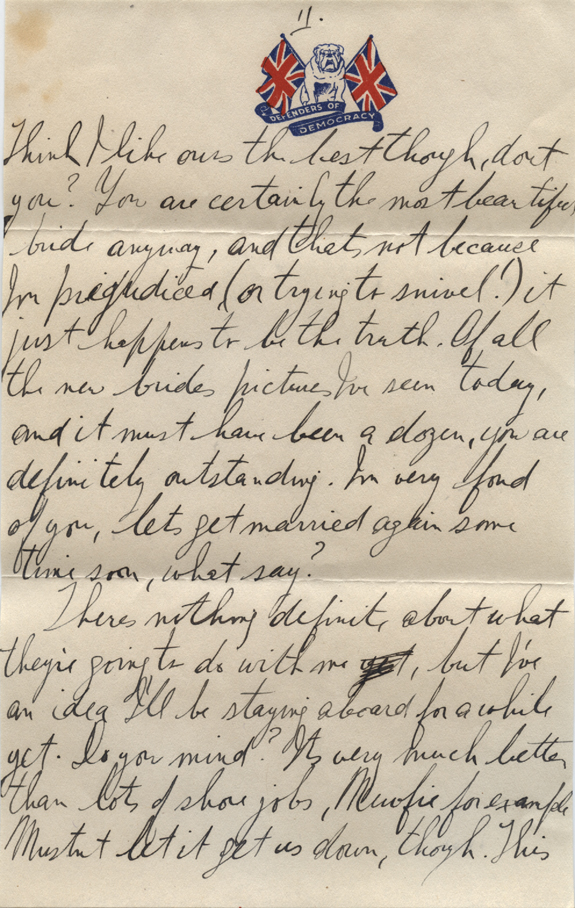 11.
DEFENDERS OF
DEMOCRACY
Think I like ours the best though, don't
you? You are certainly the most beautiful
bride anyway, and thats not because
I'm prejudiced (or trying to snivel!) it
just happens to be the truth. Of all
the new brides pictures I've seen today,
and it must have been a dozen, you are
definitely outstanding. I'm very fond
of you, lets get married again some
time soon, what say?
Theres nothing definite about what
they're going to do with me yet, but I've
an idea I'll be staying aboard for awhile
yet. Do you mind? Its very much better
than lots of shore jobs, Newfie for example
Mustn't let it get us down, though. This